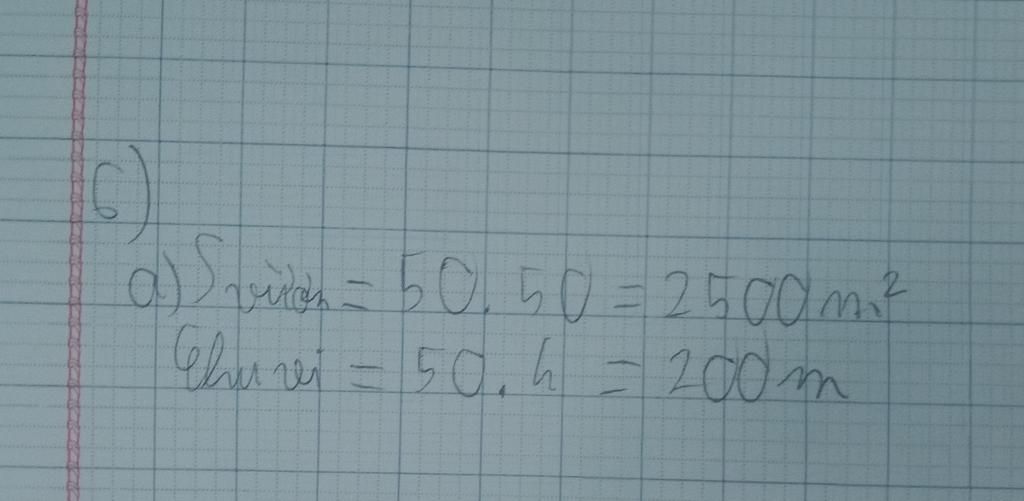 6)
a) S vườn = 50.50 = 2500m²
Chu vi = 50.4 = 200m